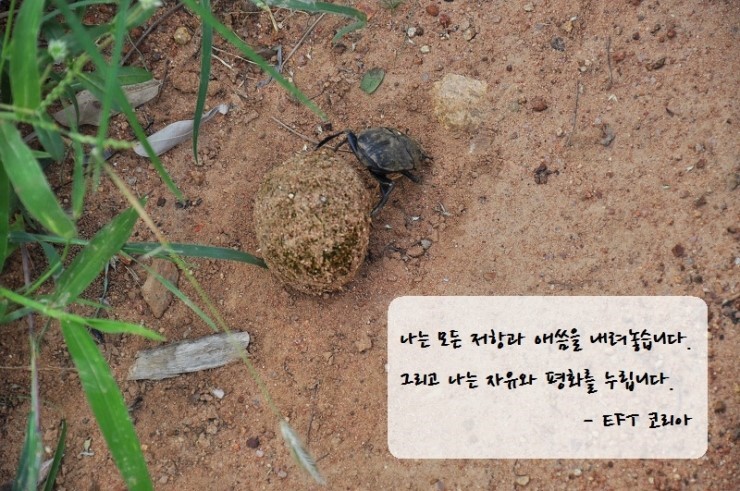 나는 모든 저항과 애씀을 내려놓습니다.
그리고 나는 자유와 평화를 누립니다.
- EFT 코리아